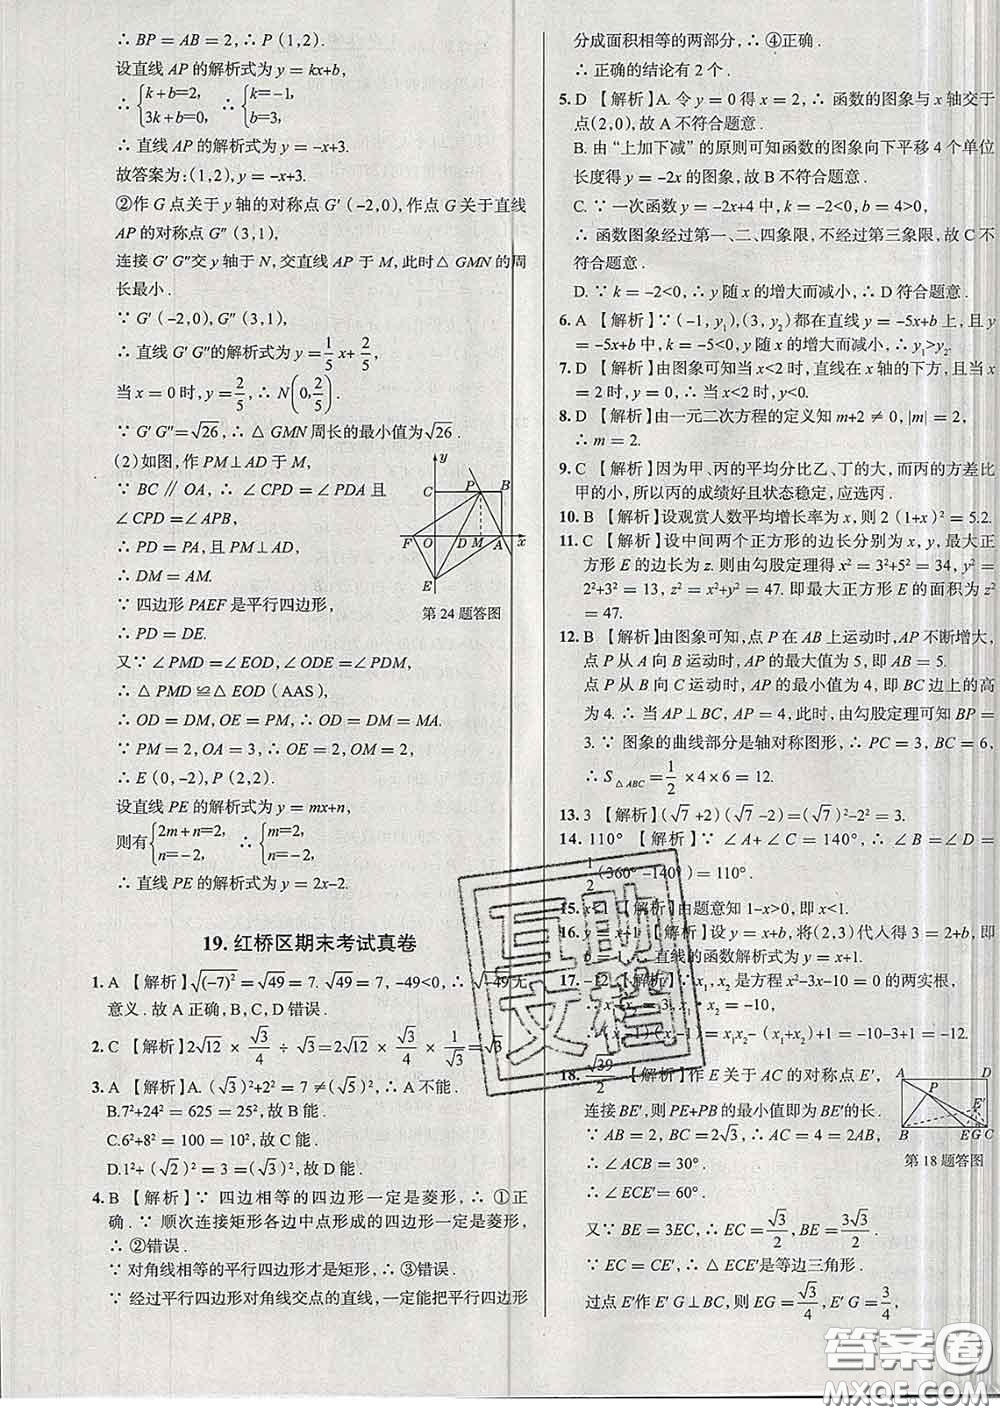 ∴ BP = AB = 2, ∴ P (1,2) .
设直线 AP 的解析式为 y = kx+b,
∴ {k+b=2, 3k+b=0, ∴ {k=-1, b=3,
∴ 直线 AP 的解析式为 y = -x+3.
故答案为:(1,2), y = -x+3.
②作 G 点关于 y 轴的对称点 G′ (-2,0), 作点 G 关于直线
AP 的对称点 G″ (3,1),
连接 G′ G″交 y 轴于 N, 交直线 AP 于 M, 此时△ GMN 的周
长最小 .
∵ G′ (-2,0), G″ (3,1),
∴ 直线 G′ G″的解析式为 y = 1/5 x+ 2/5 ,
当 x = 0 时, y = 2/5 , ∴ N(0, 2/5) .
∵ G′ G″ = √26 , ∴ △ GMN 周长的最小值为 √26 .
(2)如图, 作 PM⊥AD 于 M,
∵ BC ∥ OA, ∴ ∠CPD = ∠PDA 且
∠CPD = ∠APB,
∴ PD = PA, 且 PM⊥AD,
∴ DM = AM.
∵ 四边形 PAEF 是平行四边形,
∴ PD = DE.
又∵ ∠PMD = ∠EOD, ∠ODE = ∠PDM,
∴ △ PMD ≌△ EOD (AAS),
∴ OD = DM, OE = PM, ∴ OD = DM = MA.
∵ PM = 2, OA = 3, ∴ OE = 2, OM = 2,
∴ E (0,-2), P (2,2) .
设直线 PE 的解析式为 y = mx+n,
则有 {2m+n=2, n=-2, ∴ {m=2, n=-2,
∴ 直线 PE 的解析式为 y = 2x-2.
y
C P B
F O D M A x
E
第 24 题答图
19. 红桥区期末考试真卷
1. A 【解析】√(-7)² = √49 = 7. √49 = 7, -49<0, ∴ √-49 无
意义 . 故 A 正确, B, C, D 错误 .
2. C 【解析】2√12 × √3/4 ÷ √3 = 2√12 × √3/4 × 1/√3 = √3
3. A 【解析】A. (√3)²+2² = 7 ≠ (√5)², ∴ A 不能 .
B.7²+24² = 625 = 25², 故 B 能 .
C.6²+8² = 100 = 10², 故 C 能 .
D.1²+ (√2)² = 3 = (√3)², 故 D 能 .
4. B 【解析】∵ 四边相等的四边形一定是菱形, ∴ ①正
确 . ∵ 顺次连接矩形各边中点形成的四边形一定是菱形,
∴ ②错误 .
∵ 对角线相等的平行四边形才是矩形, ∴ ③错误 .
∵ 经过平行四边形对角线交点的直线, 一定能把平行四边形
分成面积相等的两部分, ∴ ④正确 .
∴ 正确的结论有 2 个 .
5. D 【解析】A. 令 y = 0 得 x = 2, ∴ 函数的图象与 x 轴交于
点(2,0), 故 A 不符合题意 .
B. 由 “上加下减” 的原则可知函数的图象向下平移 4 个单位
长度得 y = -2x 的图象, 故 B 不符合题意 .
C. ∵ 一次函数 y = -2x+4 中, k = -2<0, b = 4>0,
∴ 函数图象经过第一、二、四象限, 不经过第三象限, 故 C 不
符合题意 .
D. ∵ k = -2<0, ∴ y 随 x 的增大而减小, ∴ D 符合题意 .
6. A 【解析】∵ (-1, y₁), (3, y₂) 都在直线 y = -5x+b 上, 且 y
= -5x+b 中, k = -5<0, y 随 x 的增大而减小, ∴ y₁>y₂.
7. D 【解析】由图象可知当 x<2 时, 直线在 x 轴的下方, 且当 x
= 2 时, y = 0, ∴ 当 x<2 时, y<0.
8. D 【解析】由一元二次方程的定义知 m+2 ≠ 0, |m| = 2,
∴ m = 2.
9. C 【解析】因为甲、丙的平均分比乙、丁的大, 而丙的方差比
甲的小, 所以丙的成绩好且状态稳定, 应选丙 .
10. B 【解析】设观赏人数平均增长率为 x, 则 2 (1+x)² = 5.2.
11. C 【解析】设中间两个正方形的边长分别为 x, y, 最大正
方形 E 的边长为 z. 则由勾股定理得 x² = 3²+5² = 34, y² =
2²+3² = 13, z² = x²+y² = 47, 即最大正方形 E 的面积为 z²
= 47.
12. B 【解析】由图象可知, 点 P 在 AB 上运动时, AP 不断增大,
点 P 从 A 向 B 运动时, AP 的最大值为 5, 即 AB = 5.
点 P 从 B 向 C 运动时, AP 的最小值为 4, 即 BC 边上的高
为 4. ∴ 当 AP⊥BC, AP = 4, 此时, 由勾股定理可知 BP =
3. ∵ 图象的曲线部分是轴对称图形, ∴ PC = 3, BC = 6,
∴ S△ABC = 1/2 × 4 × 6 = 12.
13. 3 【解析】(√7 +2) (√7 -2) = (√7)²-2² = 3.
14. 110° 【解析】∵ ∠A+ ∠C = 140°, ∴ ∠B = ∠D =
1/2 (360° -140°) = 110°.
15. x<1 【解析】由题意知 1-x>0, 即 x<1.
16. y = x+1 【解析】设 y = x+b, 将(2,3)代入得 3 = 2+b,
直线的函数解析式为 y = x+1.
17. -12 【解析】∵ x₁, x₂ 是方程 x²-3x-10 = 0 的两实根,
= 3, x₁ · x₂ = -10,
1) (x₂+1) = x₁x₂ - (x₁+x₂)+1 = -10-3+1 = -12.
18. √39/2 【解析】作 E 关于 AC 的对称点 E′,
连接 BE′, 则 PE+PB 的最小值即为 BE′的长.
∵ AB = 2, BC = 2√3, ∴ AC = 4 = 2AB,
∴ ∠ACB = 30° .
∴ ∠ECE′ = 60° .
又∵ BE = 3EC, ∴ EC = √3/2, BE = 3√3/2 .
∵ EC = CE′, ∴ △ ECE′是等边三角形 .
过点 E′作 E′ G⊥BC, 则 EG = √3/4, E′G = 3/4,
A D
P
E′
B E G C
第 18 题答图
互助
文档
答案圈
MXQE.COM